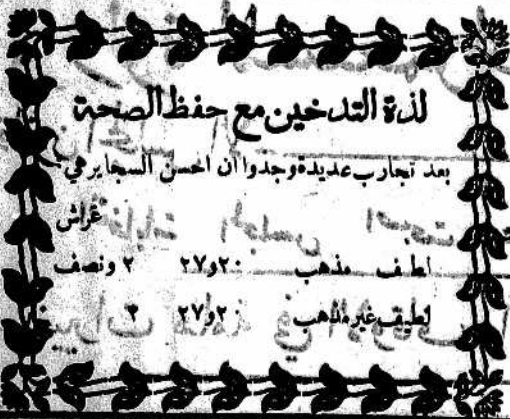 لذة التدخين مع حفظ الصحة
بعد تجارب عديدة وجدوا ان احسن السجاير هي
غراش
لطيف مذهب ٢٠و٢٧ ٢ ونصف
لطيف غير مذهب ٢٠و٢٧ ٢